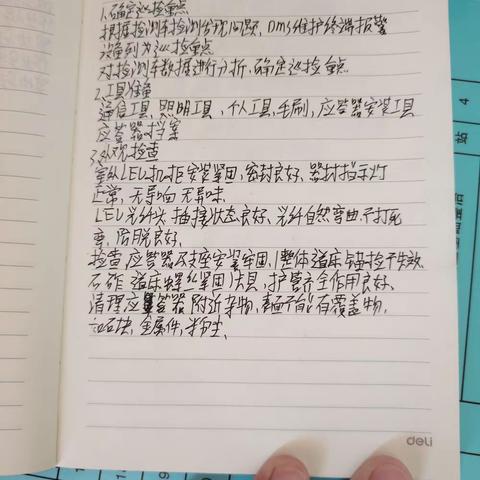 1.确定巡检重点
根据检测车检测发现问题,DMS维护终端报警
设备列为巡检重点
对检测车数据进行分析,确定巡检重点
2.工具准备
通信工具,照明工具,个人工具,毛刷,应答器安装工具
应答器档案
3.外观检查
室外LEU机柜安装紧固,密封良好,器材指示灯
正常,无异响无异味.
LEU光纤头插接状态良好,光纤自然弯曲,不打死
弯,防脱良好.
检查应答器及托座安装牢固,(整体道床
石砟道床螺丝紧固)卡具,护管齐全作用良好.
清理应答器附近杂物,表面不能有覆盖物,
如石块,金属件,粉尘、
deli
站
4